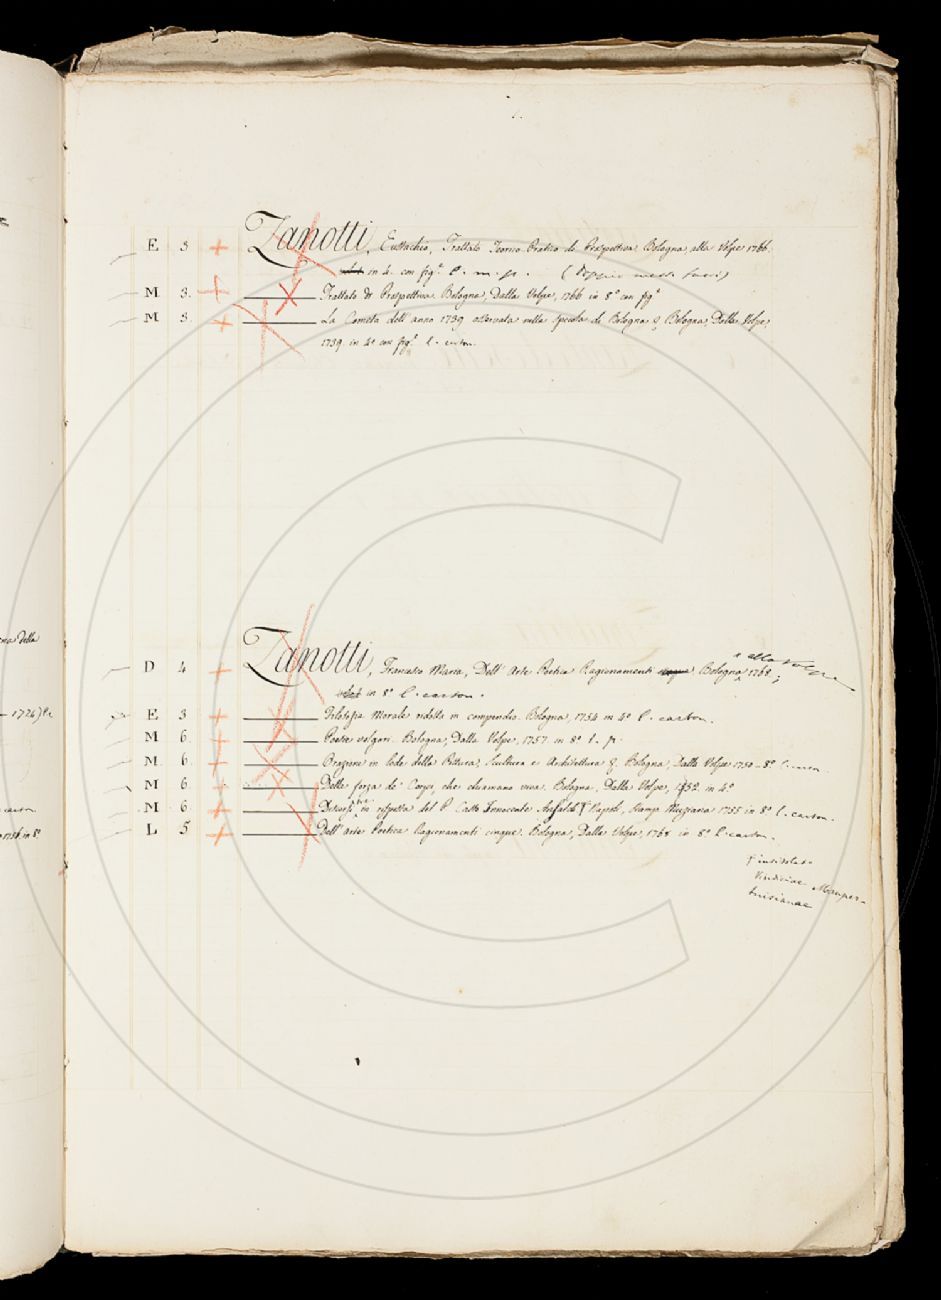 E 3 + Zanotti, Eustachio, Trattato Teorico-Pratico di Prospettiva Bologna, alla Volpe 1766.
in 4. con fig.e l. m. p. (doppio messi fuori)
M. 3. + Trattato di Prospettiva Bologna, Dalla Volpe, 1766 in 8° con fig.e
M 3. + La Cometa dell'anno 1739 osservata nella Specola di Bologna & Bologna, Dalla Volpe,
1739. in 4° con fig.e l. carton.
alla Volpe
D 4 + Zanotti, Francesco Maria, Dell'Arte Poetica Ragionamenti cinque Bologna, 1768;
in 8° l. carton.
E 3 + Filosofia Morale ridotta in compendio. Bologna, 1754 in 4° l. carton.
M 6. + Poesie volgari. Bologna, Dalla Volpe, 1757. in 8° l. p.
M. 6. + Orazioni in lode della Pittura, Scultura e Architettura &. Bologna, Dalla Volpe 1750 - 8° l. carton.
M 6 + Della forza de' Corpi, che chiamano viva. Bologna, Dalla Volpe, 1752. in 4°
M 6 + Discorsi in risposta del P. Innocente Napoli, Stamp. Muziana 1755 in 8° l. carton.
L 5 + Dell'arte Poetica Ragionamenti cinque. Bologna, Dalla Volpe, 1768 in 8° l. carton.
intitolato
Vindiciae Mauper-
tuisianae
na Della
— 1724)
carton.
1756. in 8°
C